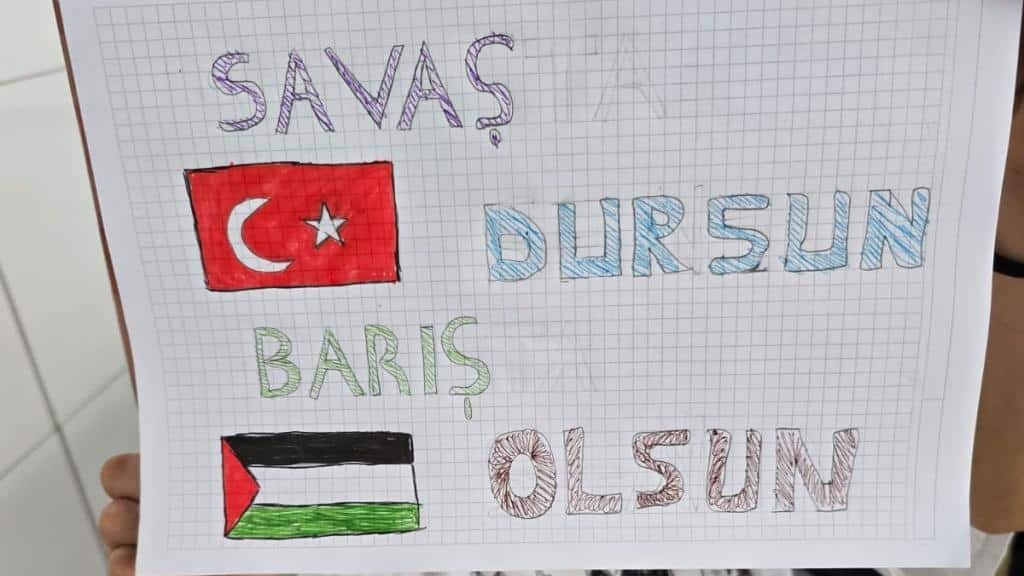 SAVAŞ
DURSUN
BARIŞ
OLSUN